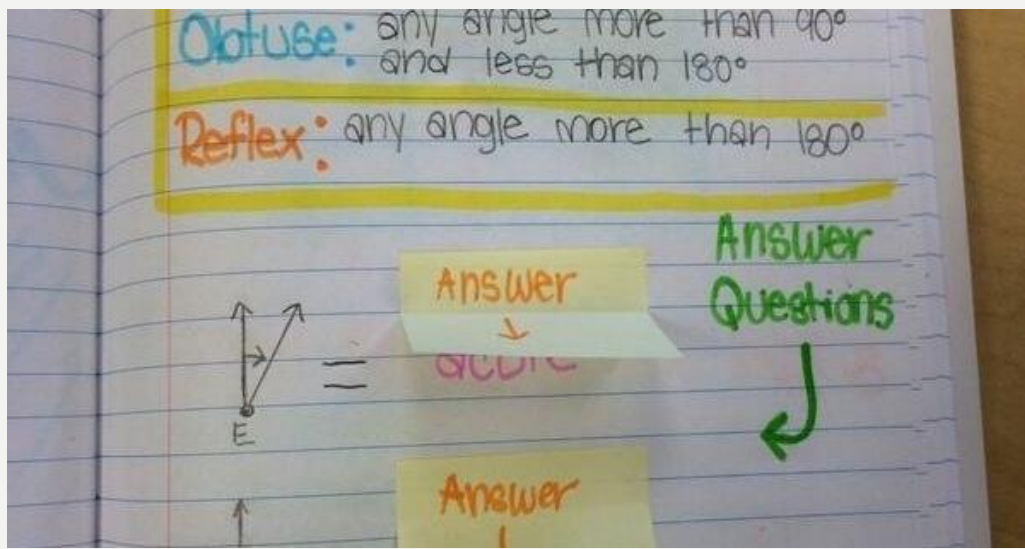 Obtuse: any angle more than 90°
and less than 180°
Reflex: any angle more than 180°
Answer
Questions
Answer
=
acute
E
Answer